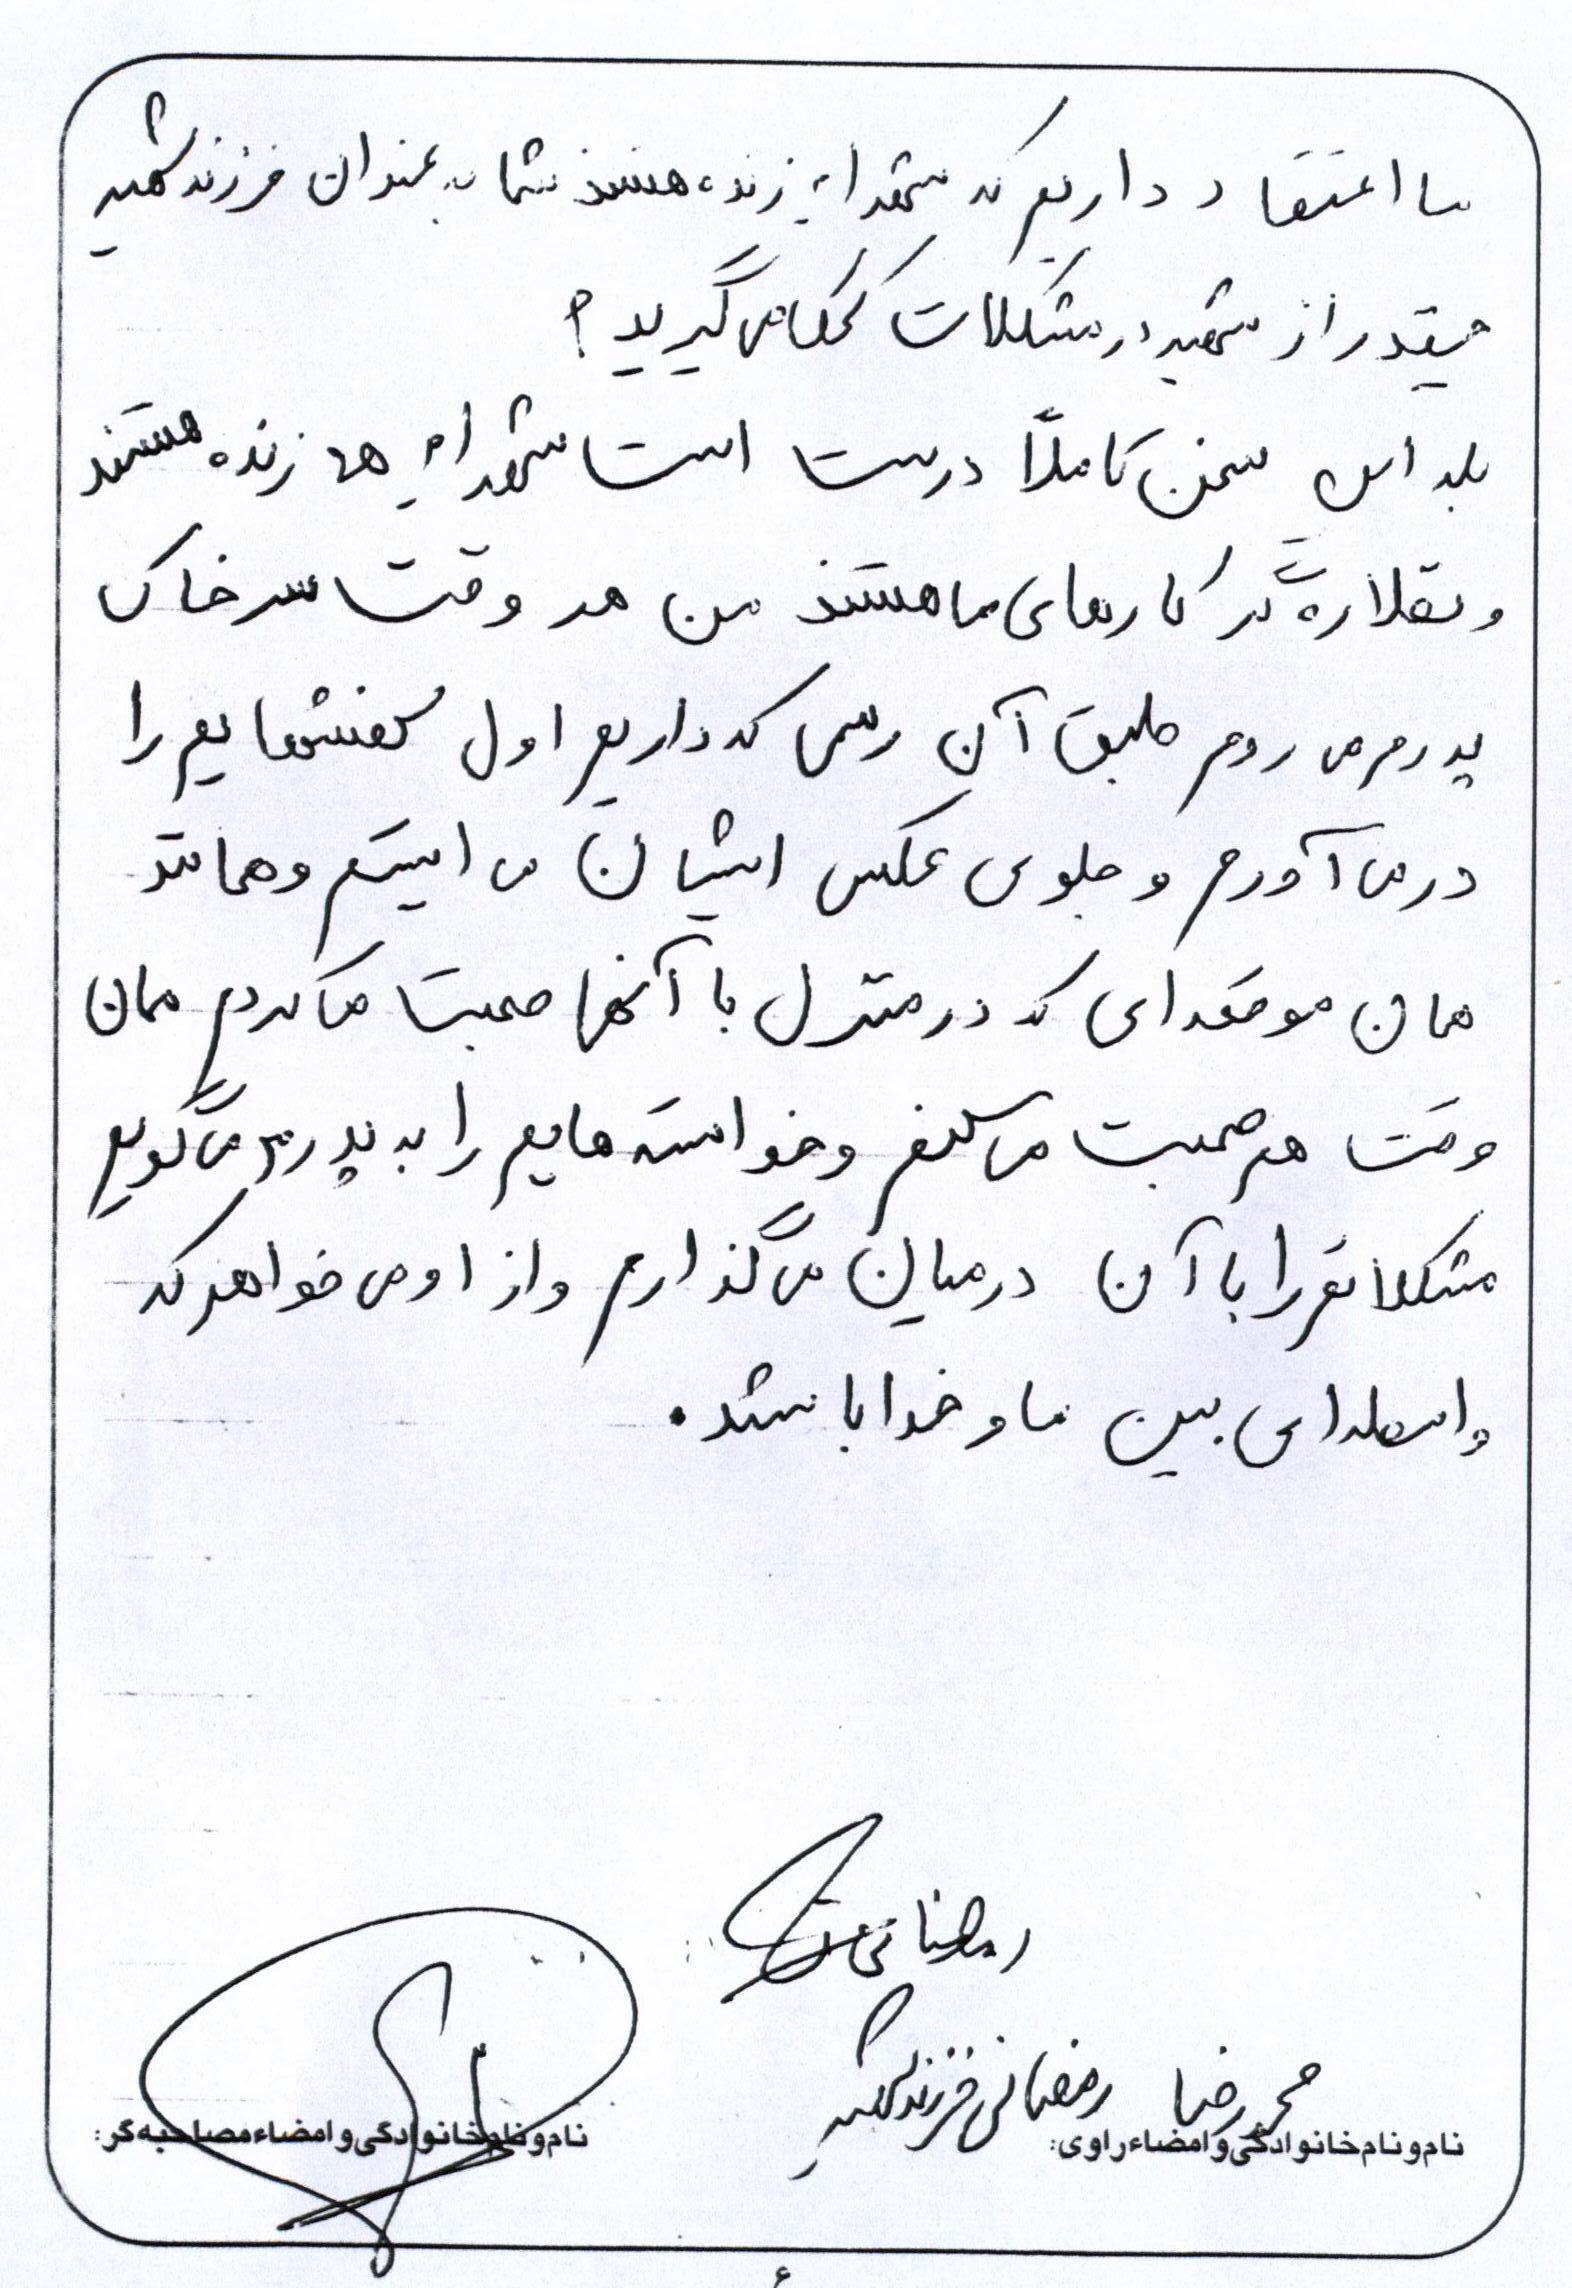 ما اعتقاد داریم که شهدا زنده هستند شما به عنوان فرزند شهید
چقدر از شهید در مشکلات کمک می گیرید؟
بله این سخن کاملاً درست است شهدا همه زنده هستند
و نظاره گر کارهای ما هستند من هر وقت سر خاک
پدرم می روم طبق آن رسمی که داریم اول کفشهایم را
در می آورم و جلوی عکس ایشان می ایستم و همانند
همان موقعه ای که در منزل با آنها صحبت می کردم همان
وقت هم صحبت می کنم و خواسته هایم را به پدرم می گویم
مشکلاتم را با آن درمیان می گذارم و از او می خواهم که
واسطه ای بین ما و خدا باشد.
رمضانی
محمدرضا رمضانی فرزند شهید
نام و نام خانوادگی و امضاء راوی:
نام و نام خانوادگی و امضاء مصاحبه گر:
۶